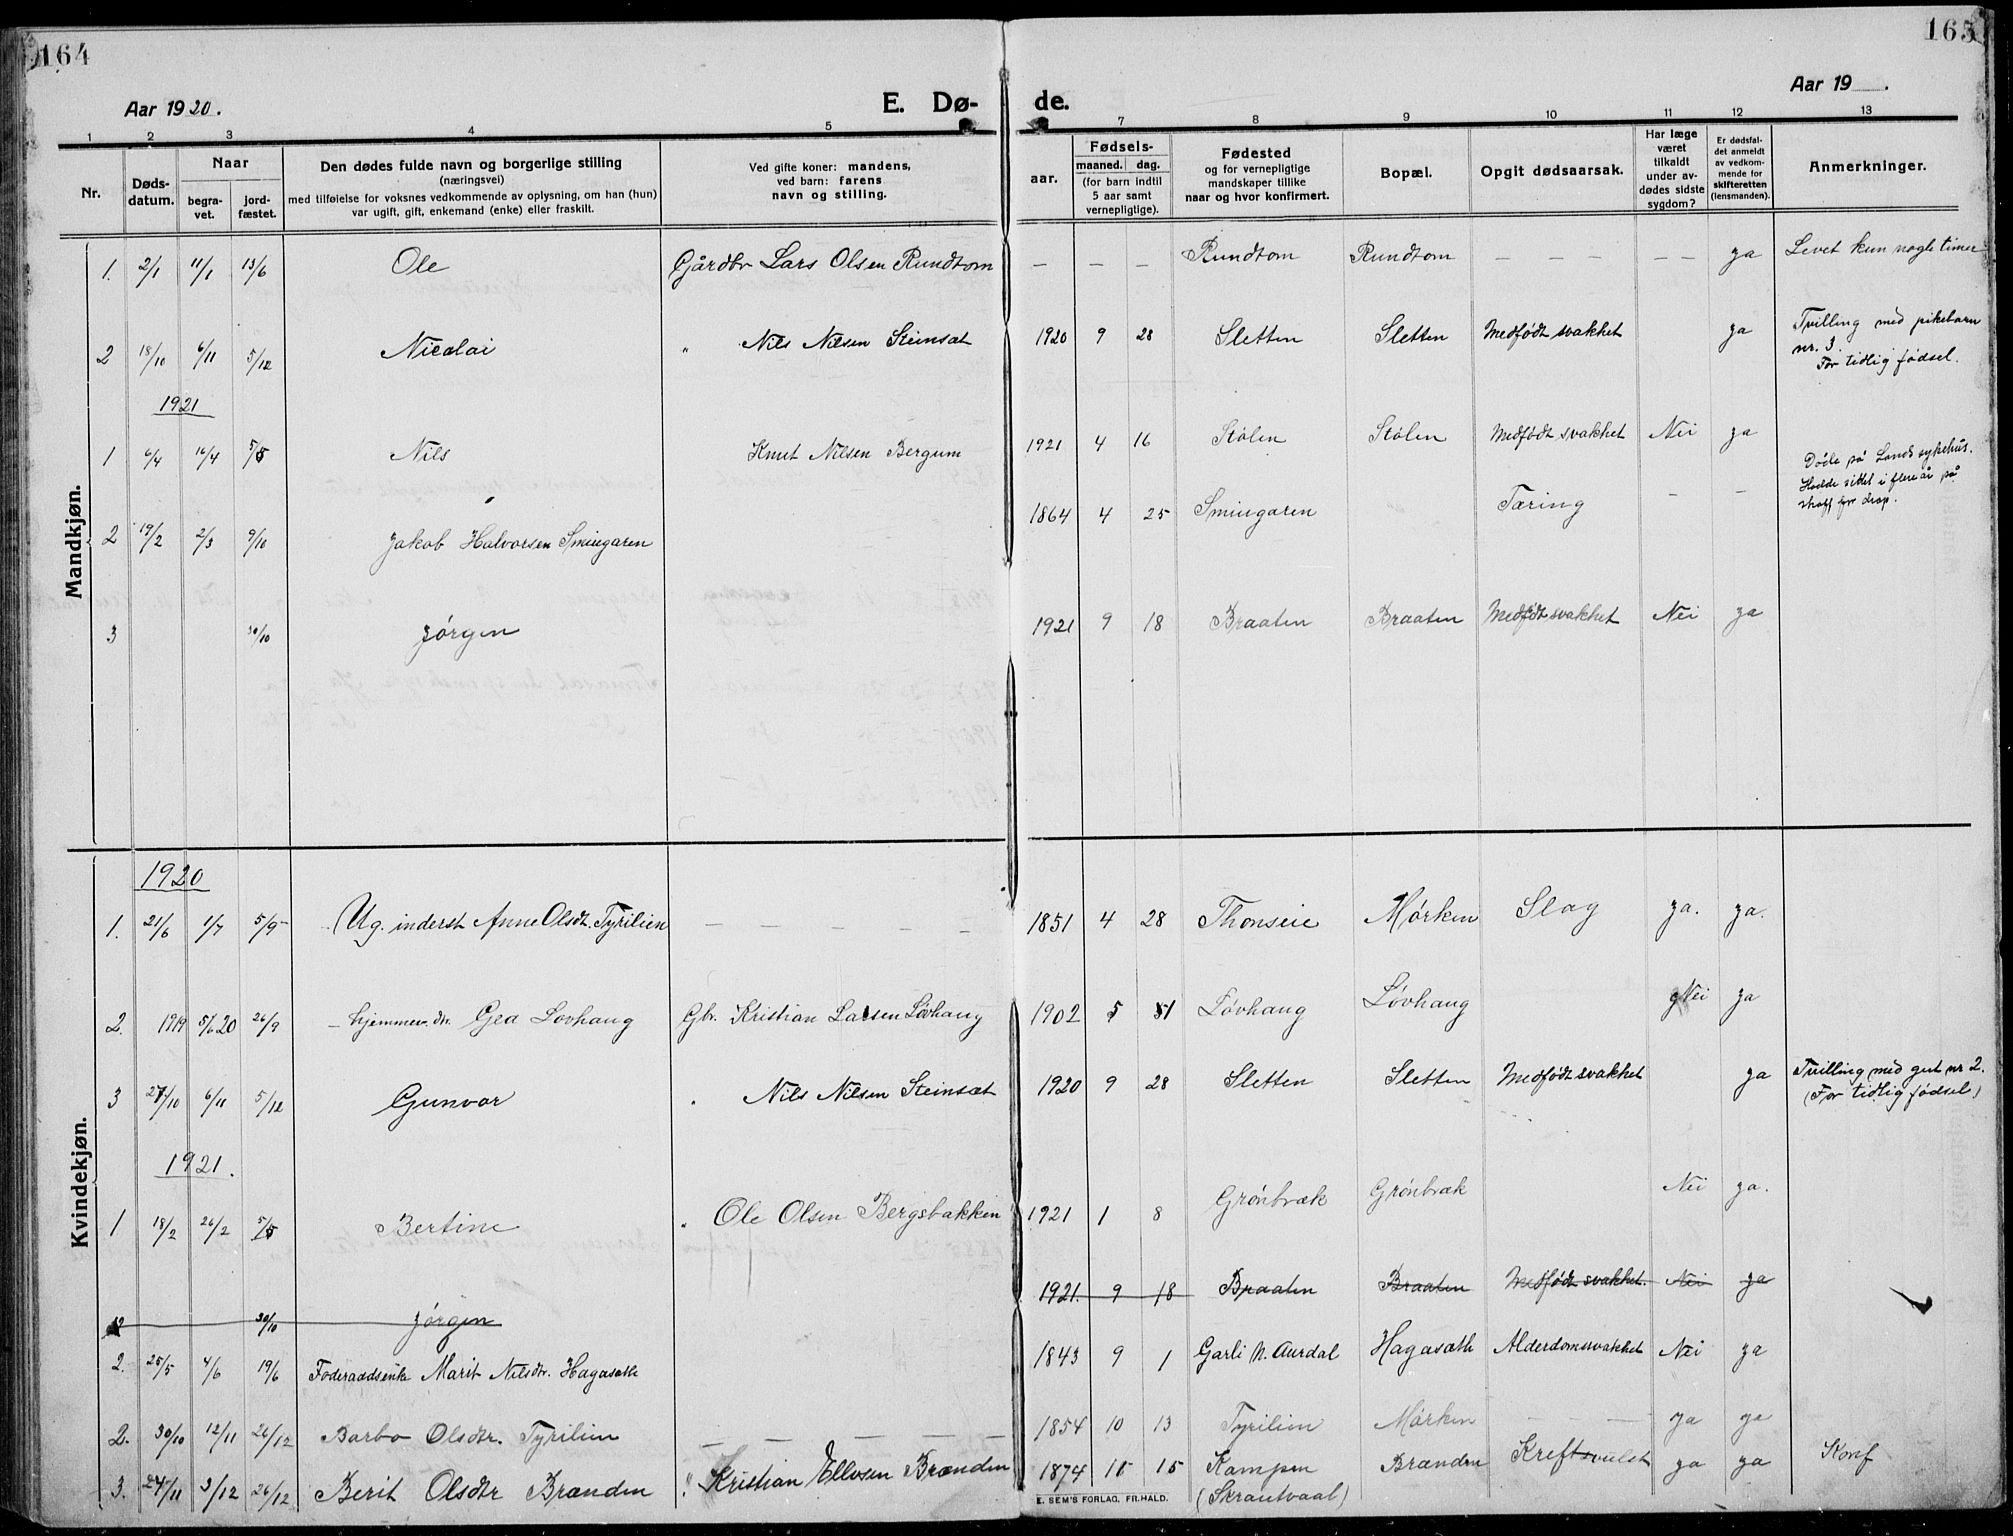 164
165
Aar 1920.
E. Dø-
de.
Aar 19 .
1 2 3 4 5 7 8 9 10 11 12 13
Nr.
Døds-
datum.
Naar
begra-
vet.
jord-
fæstet.
Den dødes fulde navn og borgerlige stilling
(næringsvei)
med tilføielse for voksnes vedkommende av oplysning, om han (hun)
var ugift, gift, enkemand (enke) eller fraskilt.
Ved gifte koner: mandens,
ved barn: farens
navn og stilling.
Fødsels-
aar.
maaned. dag.
(for barn indtil
5 aar samt
vernepligtige).
Fødested
og for vernepligtige
mandskaper tillike
naar og hvor konfirmert.
Bopæl.
Opgit dødsaarsak.
Har læge
været
tilkaldt
under av-
dødes sidste
sygdom?
Er dødsfal-
det anmeldt
av vedkom-
mende for
skifteretten
(lensmanden).
Anmerkninger.
Mandkjøn.
1. 2/1 11/1 13/6 Ole Gårdbr Lars Olsen Rundtom — — — Rundtom Rundtom — — — — — — ja Levet kun nogle timer
2 18/10 6/11 5/12 Nicolai " Nils Nilsen Steinsæt 1920 9 28 Sletten Sletten Medfødt svakhet ja Tvilling med pikebarn
nr. 3.
For tidlig fødsel.
1921
1 6/4 16/4 5/5 Nils Knut Nilsen Bergum 1921 4 16 Stølen Stølen Medfødt svakhet Nei ja
2 19/2 2/3 9/10 Jakob Halvorsen Smiugaren 1864 4 25 Smiugaren " Tæring — — Døde på Lands sykehus.
Hadde sittet i flere år på
straff for drap.
3 30/10 Jørgen 1921 9 18 Braaten Braaten Medfødt svakhet Nei ja
Kvindekjøn.
1920
1. 21/6 1/7 5/9 Ug. inderst Anne Olsdt. Tyrilien — — — — — 1851 4 28 Thonseie Mørken Slag ja. ja.
2. 1919 5/6 20 26/9 — hjemmev. dr. Gea Lovhaug Gbr. Kristian Larsen Løvhaug 1902 5 31 Løvhaug Løvhaug Nei ja
3 27/10 6/11 5/12 Gunvor " Nils Nilsen Steinsæt 1920 9 28 Sletten Sletten Medfødt svakhet ja Tvilling med gut nr 2.
(For tidlig fødsel)
1921.
1 18/2 26/2 5/5 Bertine " Ole Olsen Bergsbakken 1921 1 8 Grønbræk Grønbræk Nei ja.
2 30/10 Jørgen 1921. 9 18 Braaten Braaten Medfødt svakhet. Nei ja
2. 25/5 4/6 19/6 Føderaadsenke Marit Nilsdtr. Hagasæth 1843 9 1 Garli N. Aurdal Hagasæth Alderdomssvakhet Nei ja
2. 30/10 12/11 26/12 Barbo Olsdtr. Tyrilien — — — — — 1854 10 13 Tyrilien Mørken — — ja ja
3. 24/11 3/12 26/12 Berit Olsdtr Brænden " Kristian Ellvsen Brænden 1874 11 15 Kampen Brænden Kreftsvulst ja ja Konf
(Skrautvaal)
E. SEM'S FORLAG, FR.HALD.